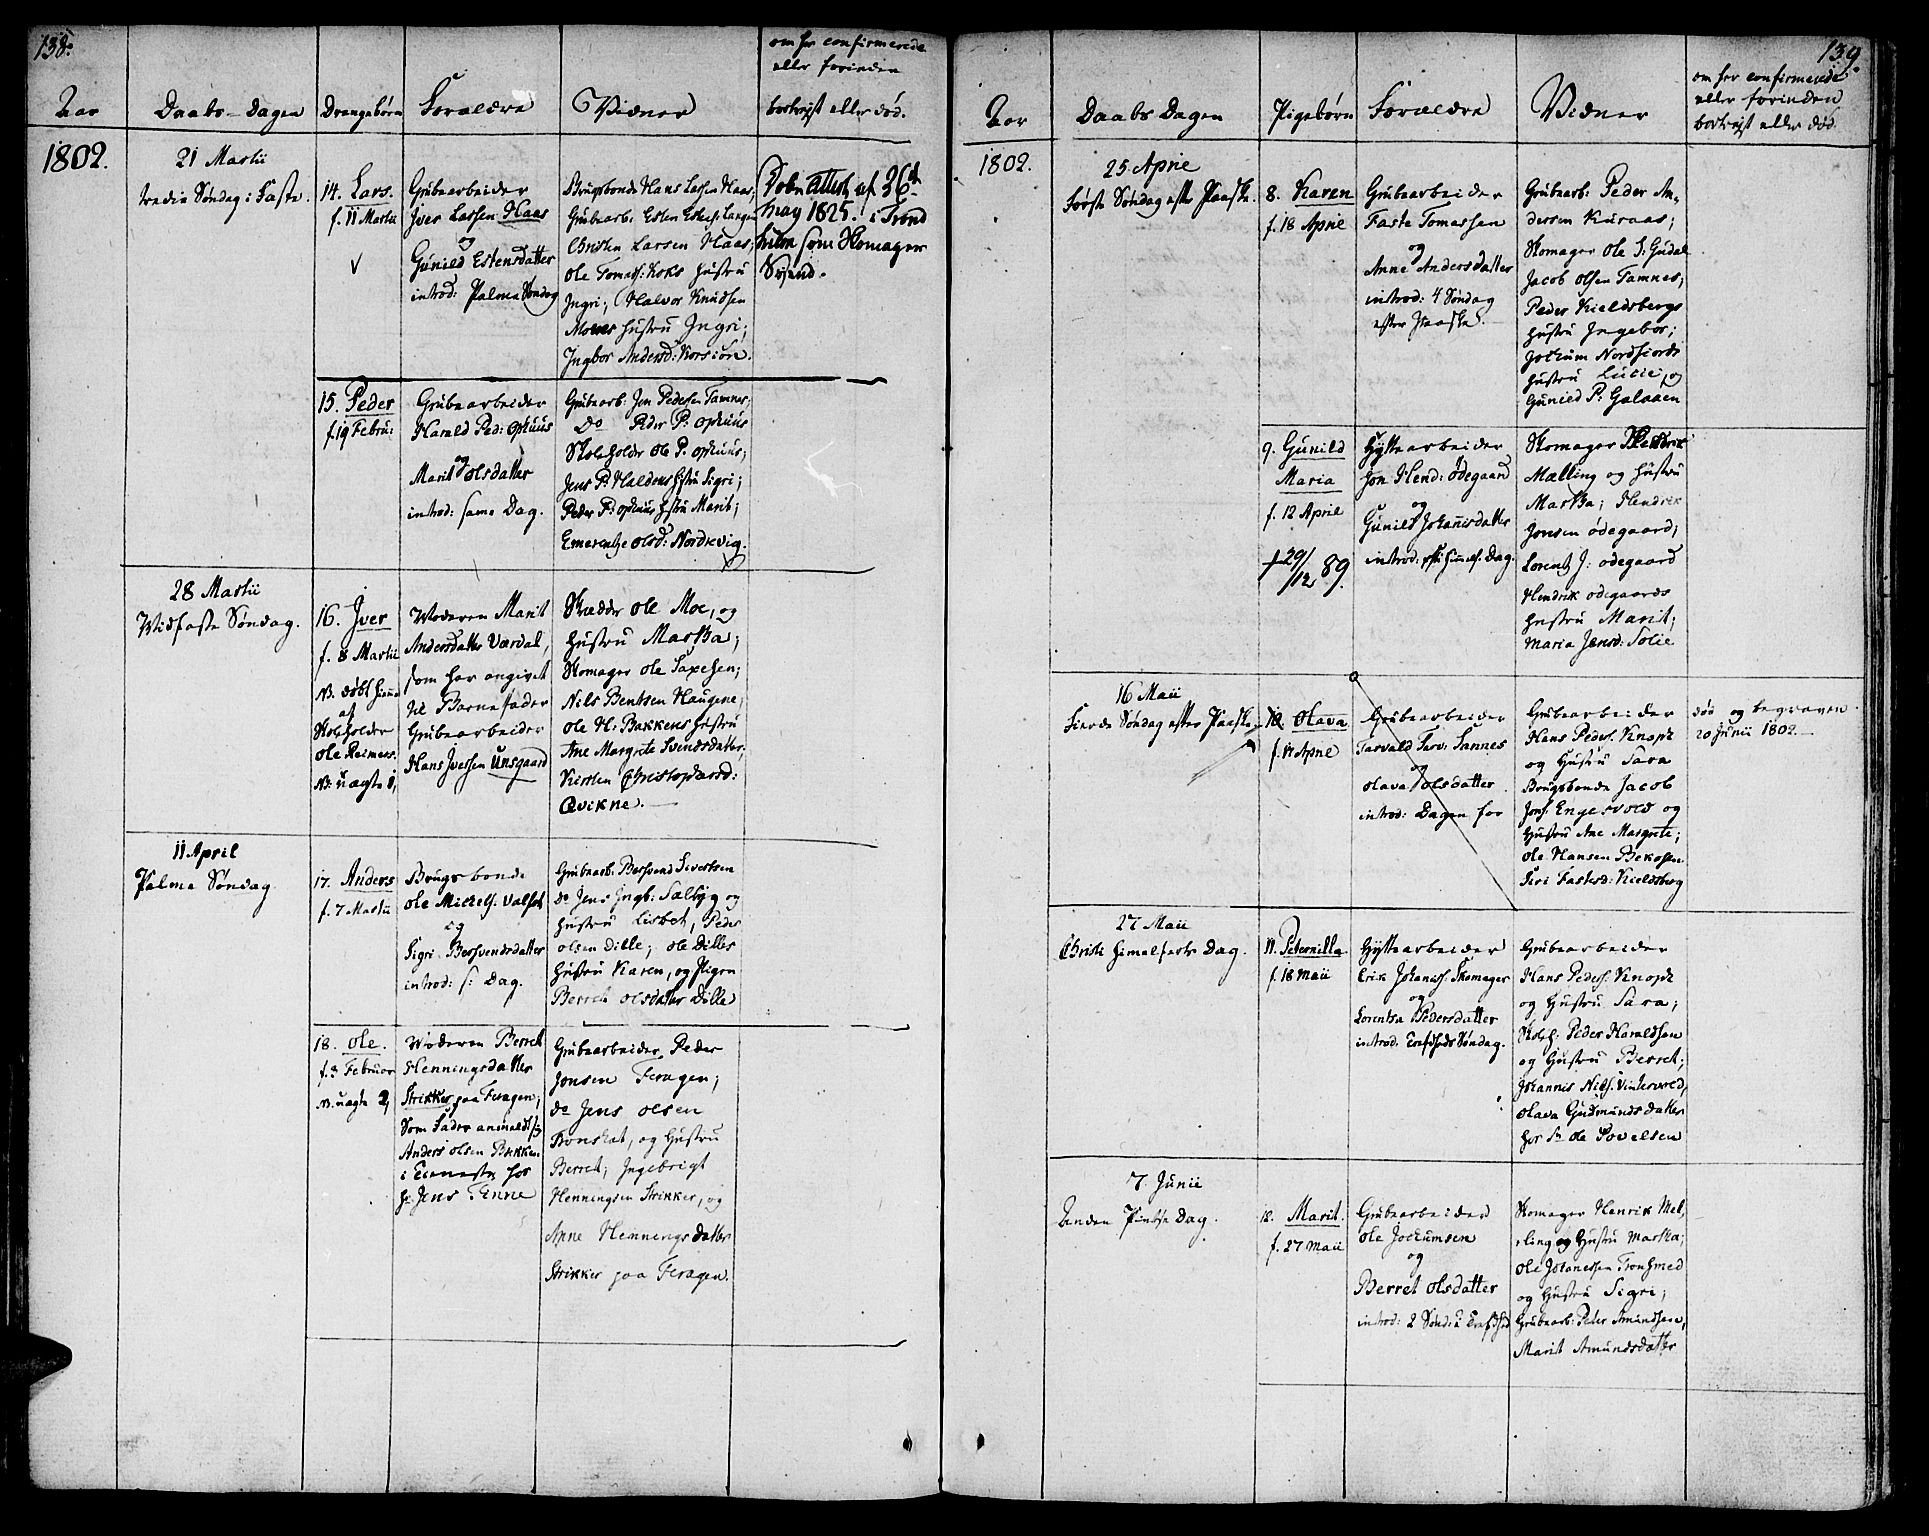 138.
Aar
Daabs-Dagen
Drengebørn
Forældre
Vidner
om her confirmerede
eller forinden
bortrejst eller død.
1802.
21 Martii
tredie Søndag i Faste.
14. Lars.
f. 11 Martii
Grubearbeider
Iver Larssen Haas
og
Gunild Estensdatter
introd: Palme Søndag
Brugsbonde Hans Larsen Haas,
Grubearb: Esten Estens: Langen
Christen Larsen Haas;
Ole Tomass: Koks Hustru
Ingri; Halvor Knudsen
Moens Hustru Ingri;
Ingbor Andersd: Korsiøn.
Dobe Attest af 26de
May 1825. i Trond
hiem som Skomager
Svend.
15. Peder
f. 19 Febru:
Grubearbeider
Harald Ped: Ophuus
og
Marit Olsdatter
introd: samme Dag.
Grubearb: Jon Pedersen Tamnes,
Do Peder P: Ophuus
Skoleholder Ole P. Ophuus;
Jens P: Haldens Hstru Sigri;
Peder P: Ophuus Hstru Marit;
Emerentze Olsd: Nordevig.
28 Martii
Midfaste Søndag.
16. Iver
f. 8 Martii
NB. døbt hiemme
af
Skoleholder
Ole Reimers.
NB: uægte 1,
Moderen Marit
Andersdatter Værdal,
som har angivet
til Barnefader
Grubearbeider
Hans Iversen Unsgaard
Skrædder Ole Moe, og
Hustru Martha;
Skomager Ole Saxesen;
Nils Bentsen Haugene;
Ole H: Bakkens Hustru
Ane Margrete Svendsdatter;
Kirsten Christophersd:
Qvikne.
11 April
Palme Søndag
17. Anders
f. 7 Martii
Brugsbonde
Ole Mickels. Valset
og
Sigri Bersvendsdatter
introd: s: Dag.
Grubearb: Bersvend Sivertsen
do Jens Ingb: Sælbyg og
Hustru Lisbet, Peder
Olsen Dille; Ole Dilles
Hustru Karen, og Pigen
Berret Olsdatter Dille
18. Ole.
f. 3 Februar
NB. uægte 2,
Moderen Berret
Henningsdatter
Strikker paa Feragen;
Som Fader anmeldtes
Anders Olsen Bakken
i Tieneste hos
Hr Jens Finne
Grubearbeider Peder
Jonsen Feragen;
do Jens Olsen
Tronshat, og Hustru
Berret; Ingebrigt
Henningsen Strikker, og
Anne Hennings datter
Strikker paa Feragen.
139.
Aar
Daabs Dagen
Pigebørn
Forældre
Vidner
om her confirmerede
eller forinden
bortrejst eller død.
1802.
25 April
Første Søndag efter Paaske.
8. Karen
f. 18 April
Grubearbeider
Faste Tomassen
og
Anne Andersdatter
introd: 4 Søndag
efter Paaske.
Grubearb: Peder An,
dersen Kuraas;
Skomager Ole S: Gudal
Jacob Olsen Tamnes;
Peder Kieldsbergs
Hustru Ingebor;
Jochum Nordfiords
Hustru Lucie, og
Gunild P: Galaaen
9. Gunild
Maria
f. 12 April
† 29/12 89.
Hytte arbeider
Jon Hend: Ødegaard
og
Gunild Johannisdatter
introd: Chr: Himmelf: Dag.
Skomager Hendrik
Mælling og Hustru
Martha; Hendrik
Jonsen Ødegaard;
Lorentz J: Ødegaard
Hendrik Ødegaards
Hustru Marit;
Maria Jensd: Solie
16 Maii
Fierde Søndag efter Paaske
10. Olava
f. 11 April
Grubearbeider
Tarvald Tarv: Sannes
og
Olava Olsdatter
introd: Dagen før
Grubearbeider
Hans Peders. Knoph
og Hustru Sara
Brugsbonde Jacob
Jons. Engesvold og
Hustru Ane Margrete;
Ole Hansen Bekosen
Siri Fastesd: Kieldsberg
død og begraven
20 Junii 1802.
27 Maii
Christi Himelfarts Dag.
11. Peternilla
f. 18 Maii
Hyttearbeider
Erik Johaniss. Skomager
og
Lorentza Pedersdatter
introd. Trefheds Søndag.
Grubearbeider
Hans Peders. Knoph
og Hustru Sara;
Skoleh: Peder Haraldsen
og Hustru Berret;
Johannis Niels. Vintervold;
Olava Gudmunds datter
hos Sr Ole Povelsen
7. Junii
Anden Pintse Dag.
12. Marit.
f. 27 Maii
Grubearbeider
Ole Jochumsen
og
Berret Olsdatter
introd: 2 Sønd: e Trefhed
Skomager Henrik Mel,
ling og Hustru Martha;
Ole Johanessen Tronsmed
og Hustru Sigri;
Grubearb: Peder Amundsen,
Marit Amundsdatter